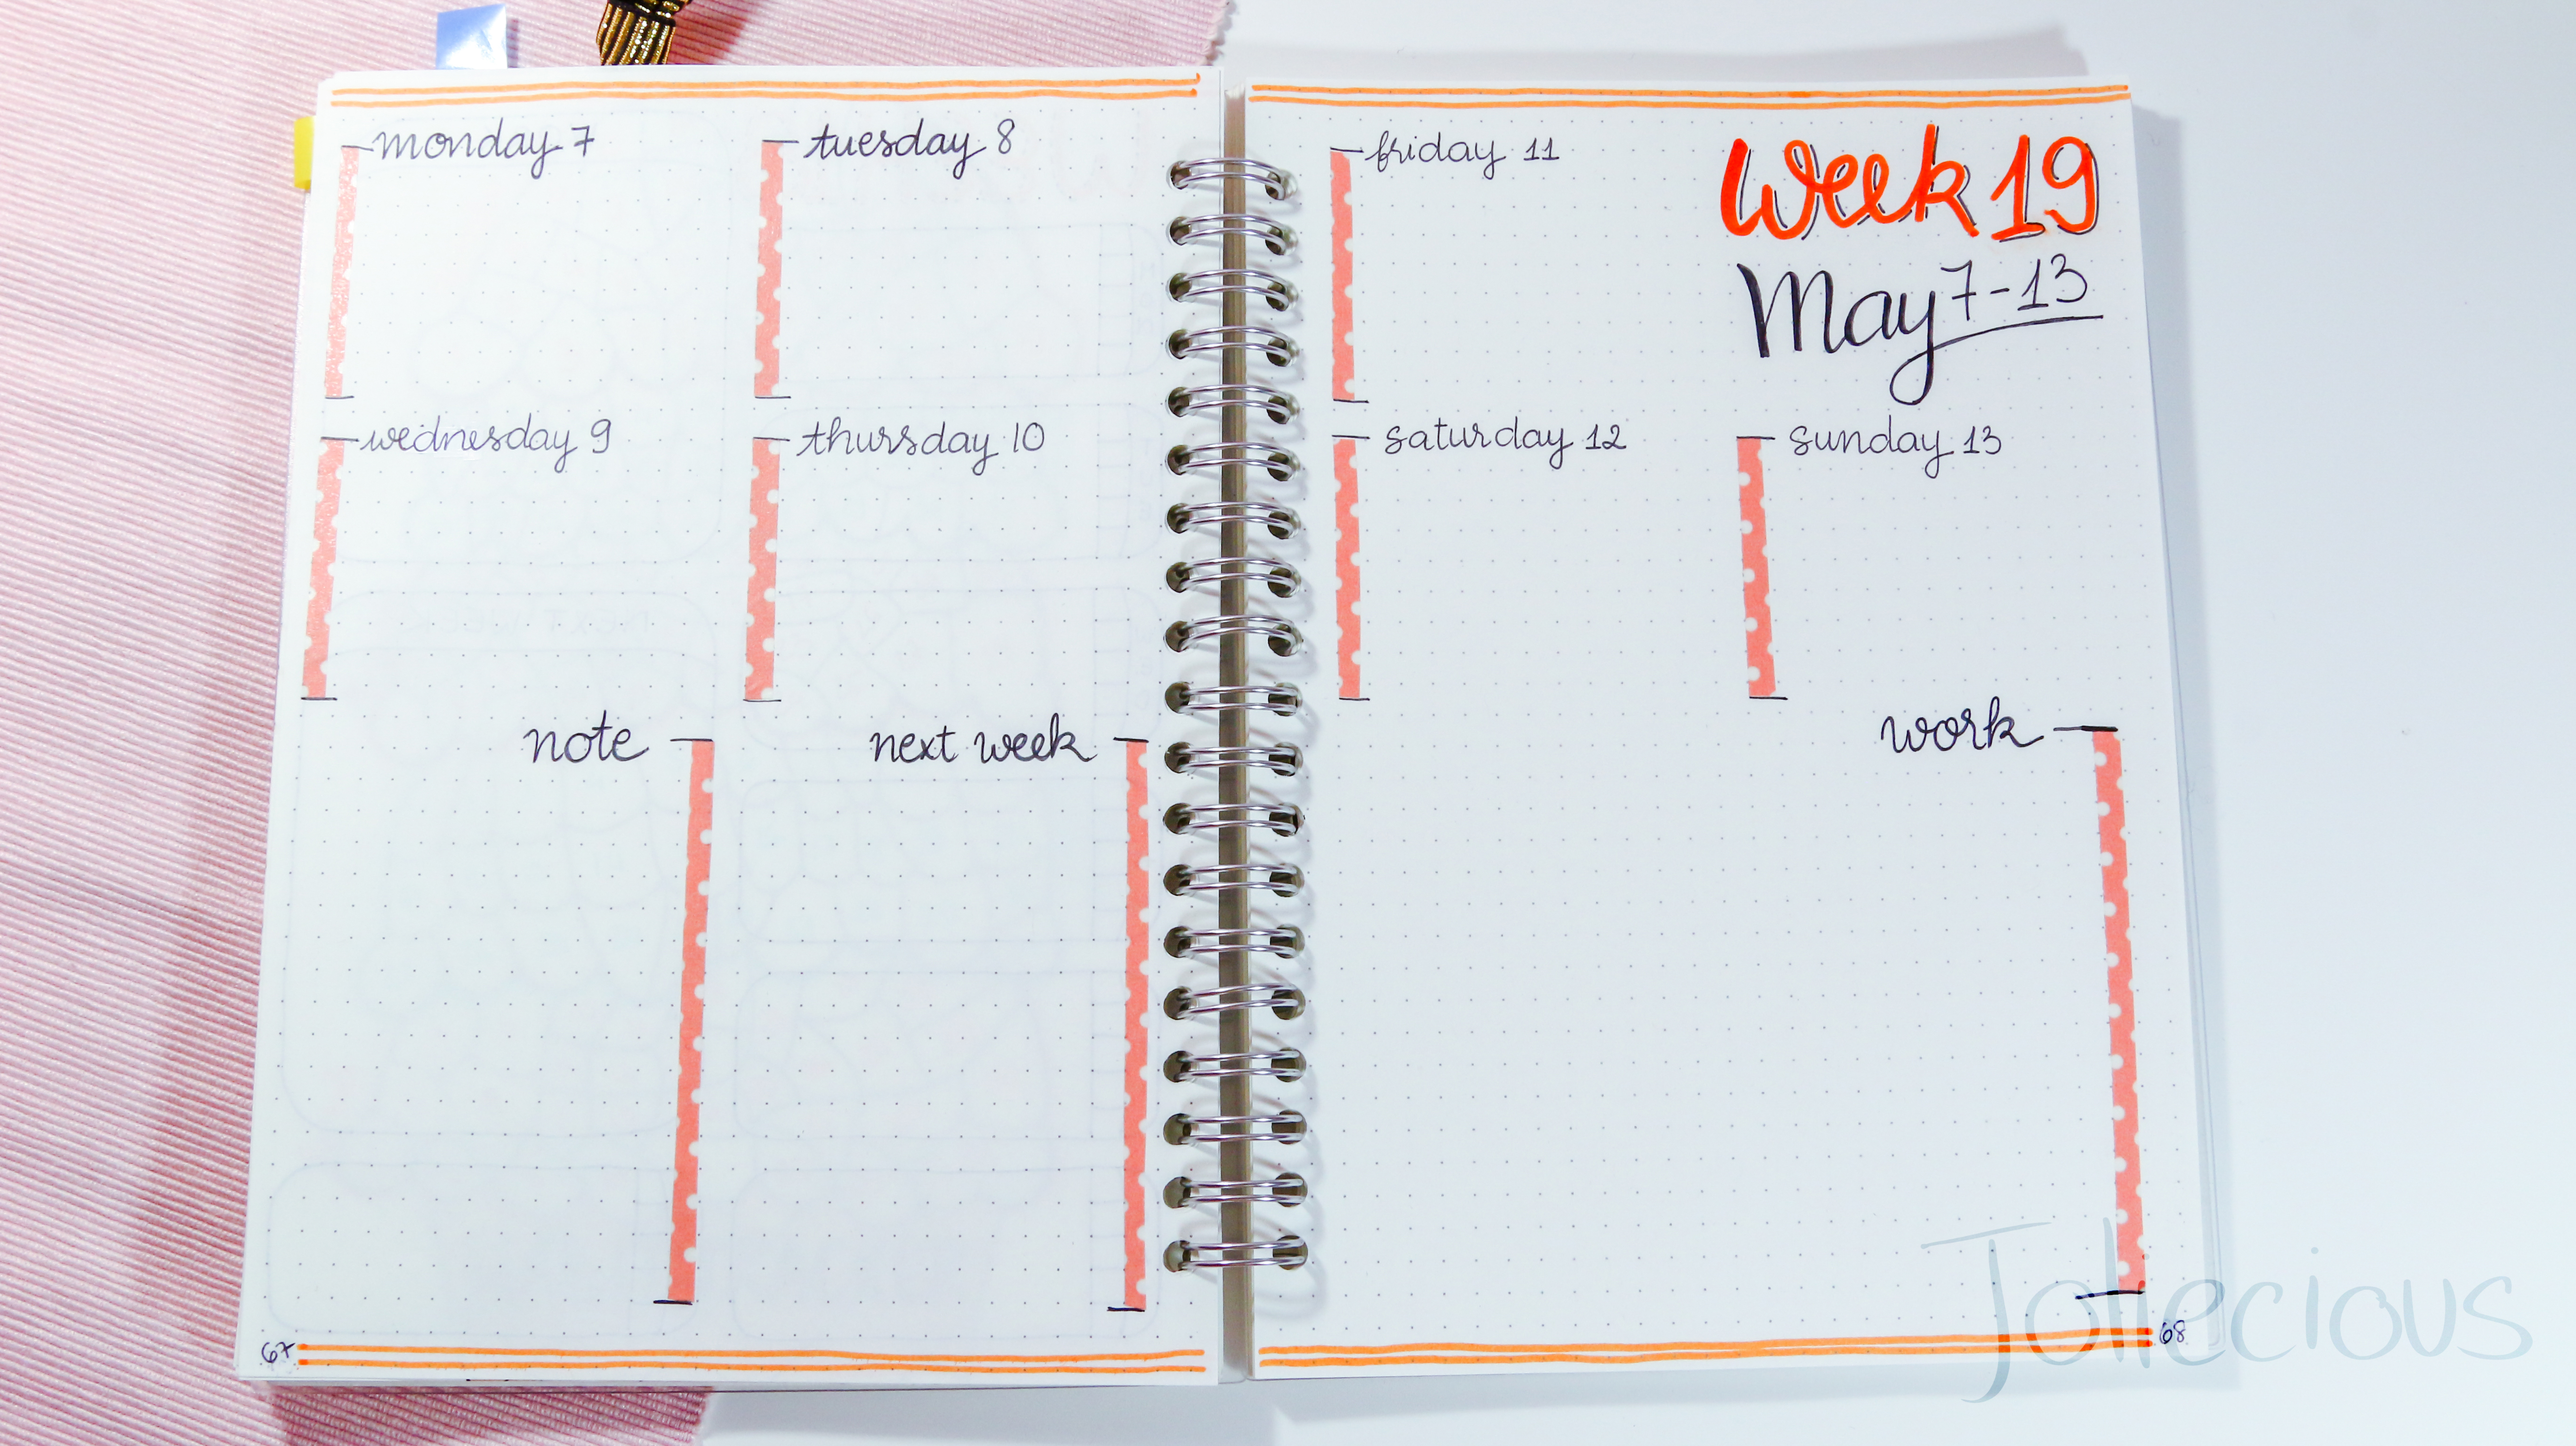 monday 7
tuesday 8
wednesday 9
thursday 10
note
next week
67
Week 19
May 7-13
friday 11
saturday 12
sunday 13
work
68
Joliecious